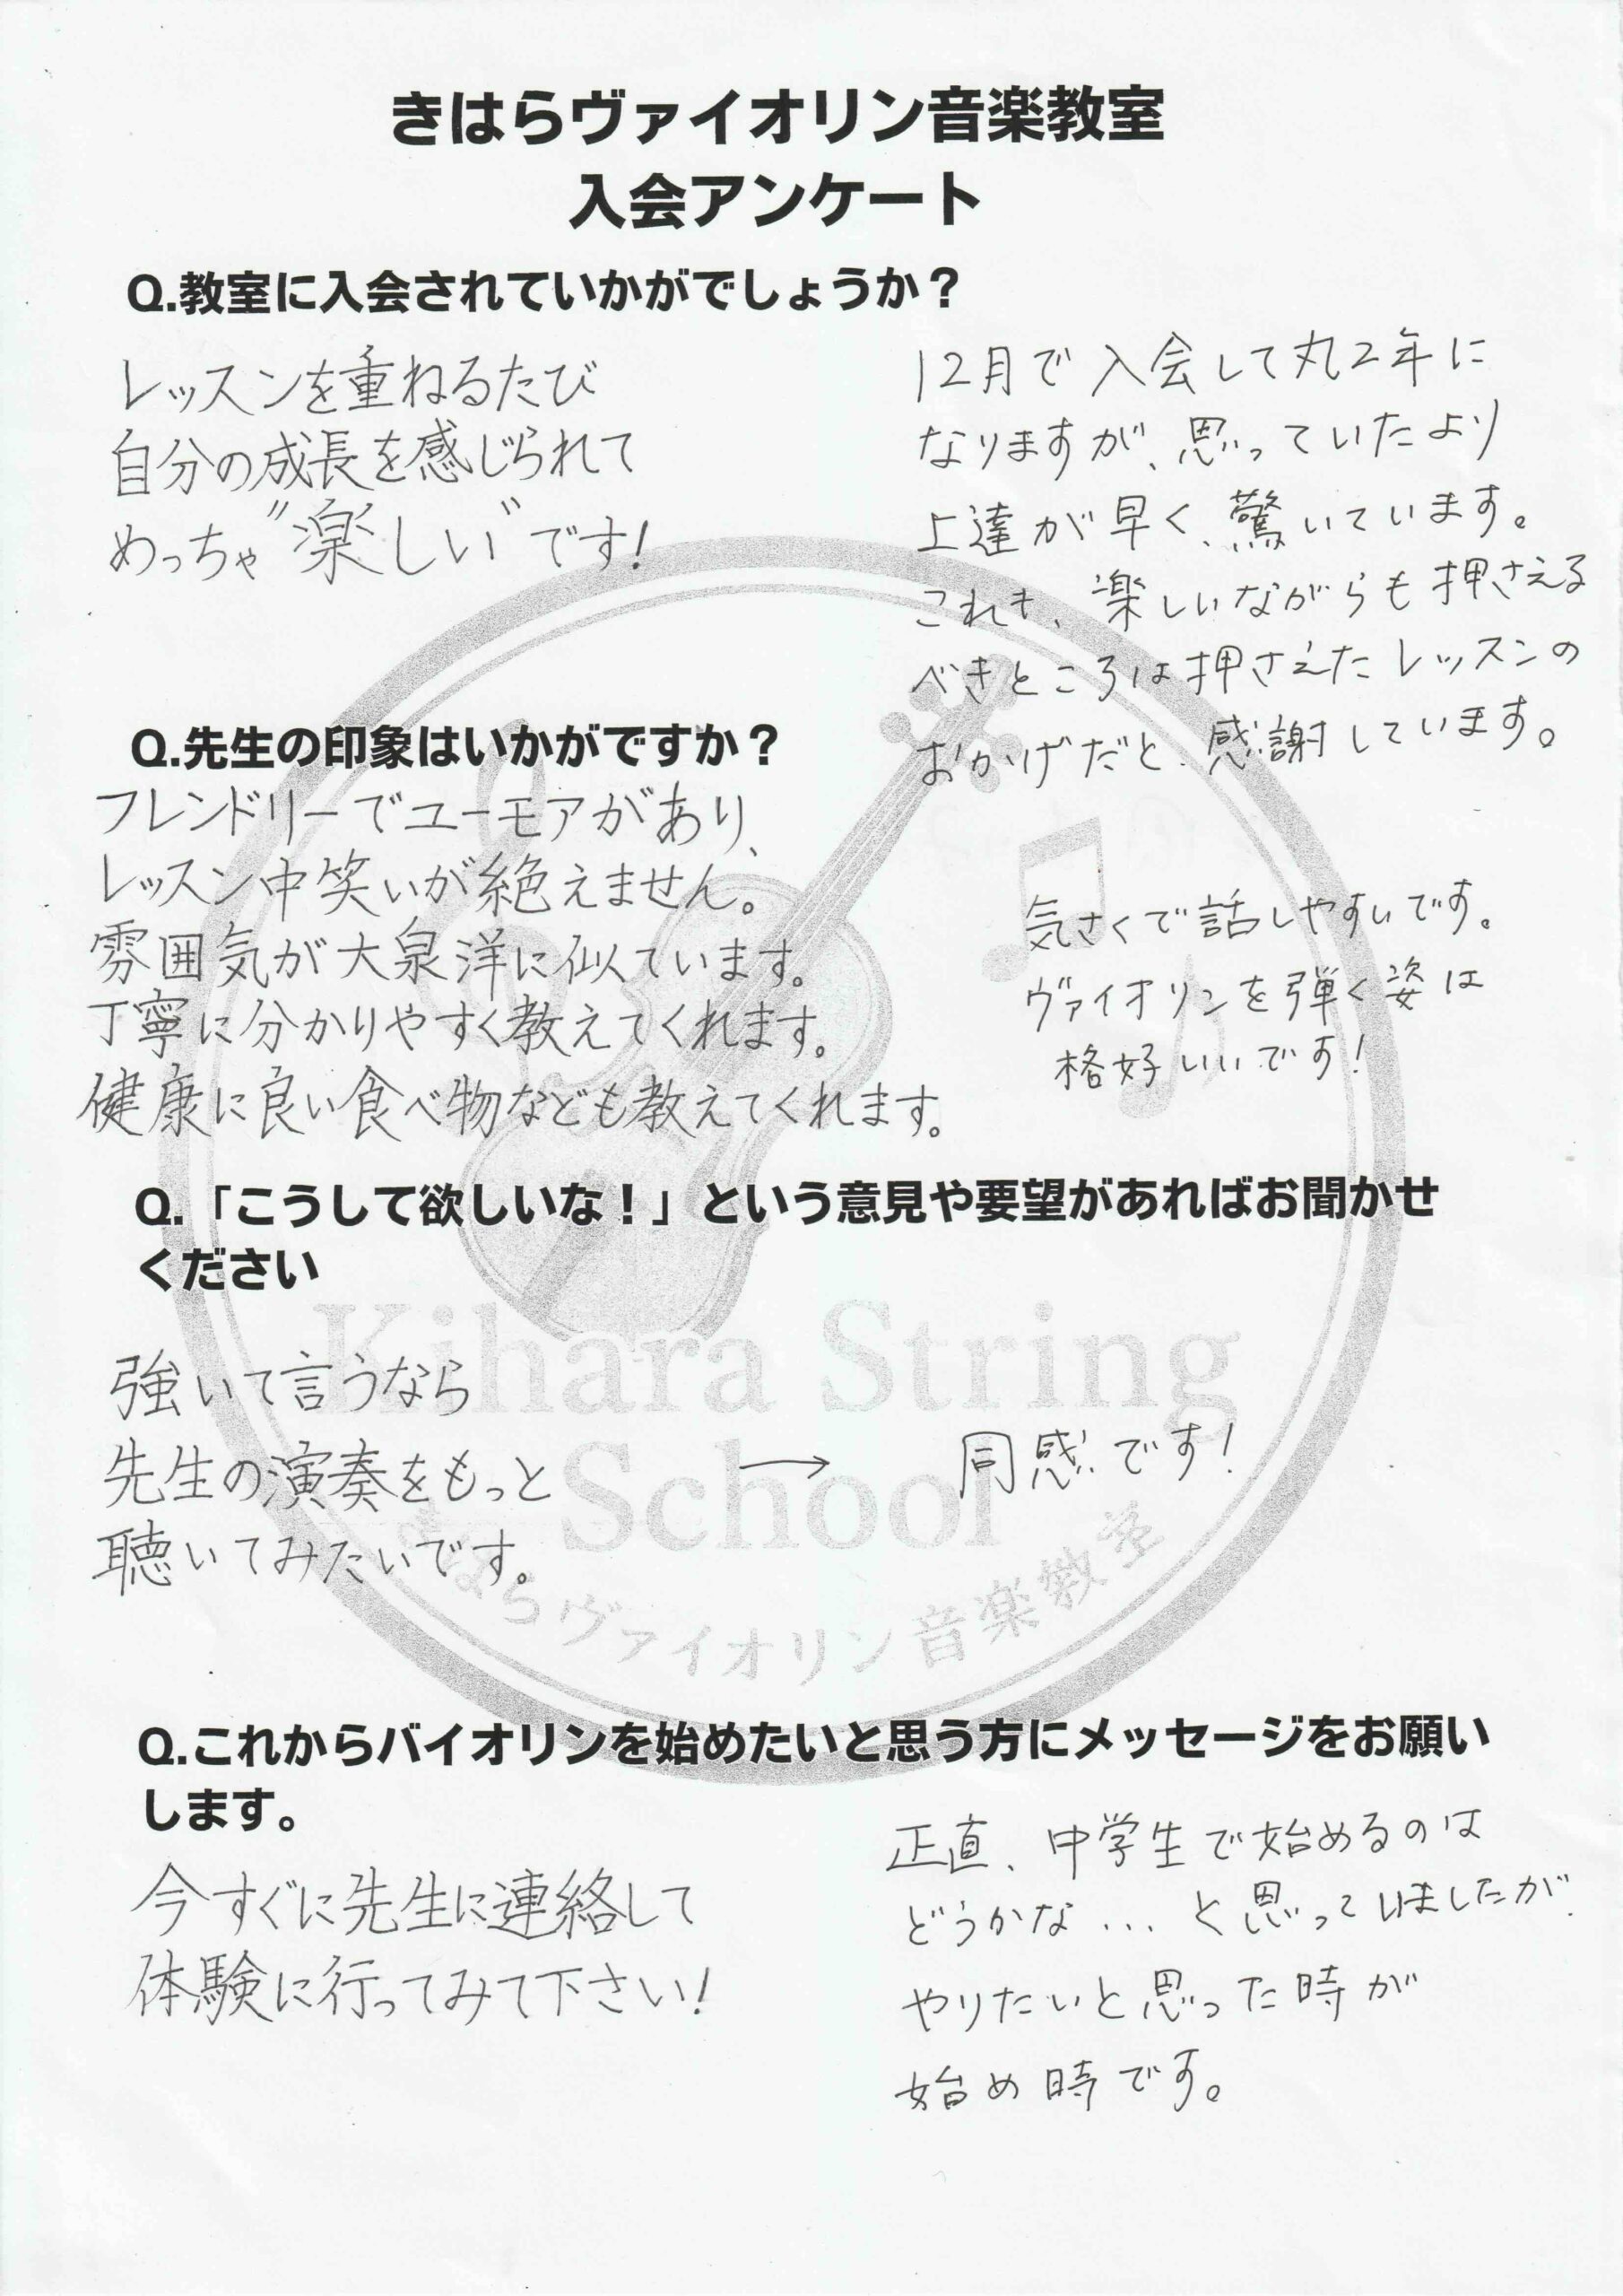 きはらヴァイオリン音楽教室
入会アンケート
Q.教室に入会されていかがでしょうか？
レッスンを重ねるたび
自分の成長を感じられて
めっちゃ〝楽しい〟です!
12月で入会して丸2年に
なりますが、思っていたより
上達が早く、驚いています。
これも、楽しいながらも押さえる
べきところは押さえたレッスンの
おかげだと、感謝しています。
Q.先生の印象はいかがですか？
フレンドリーでユーモアがあり、
レッスン中笑いが絶えません。
雰囲気が大泉洋に似ています。
丁寧に分かりやすく教えてくれます。
健康に良い食べ物なども教えてくれます。
気さくで話しやすいです。
ヴァイオリンを弾く姿は
格好いいです!
Q.「こうして欲しいな！」という意見や要望があればお聞かせ
ください
強いて言うなら
先生の演奏をもっと
聴いてみたいです。
→ 同感です!
Kihara String
School
きはらヴァイオリン音楽教室
Q.これからバイオリンを始めたいと思う方にメッセージをお願い
します。
今すぐに先生に連絡して
体験に行ってみて下さい!
正直、中学生で始めるのは
どうかな...と思っていましたが、
やりたいと思った時が
始め時です。